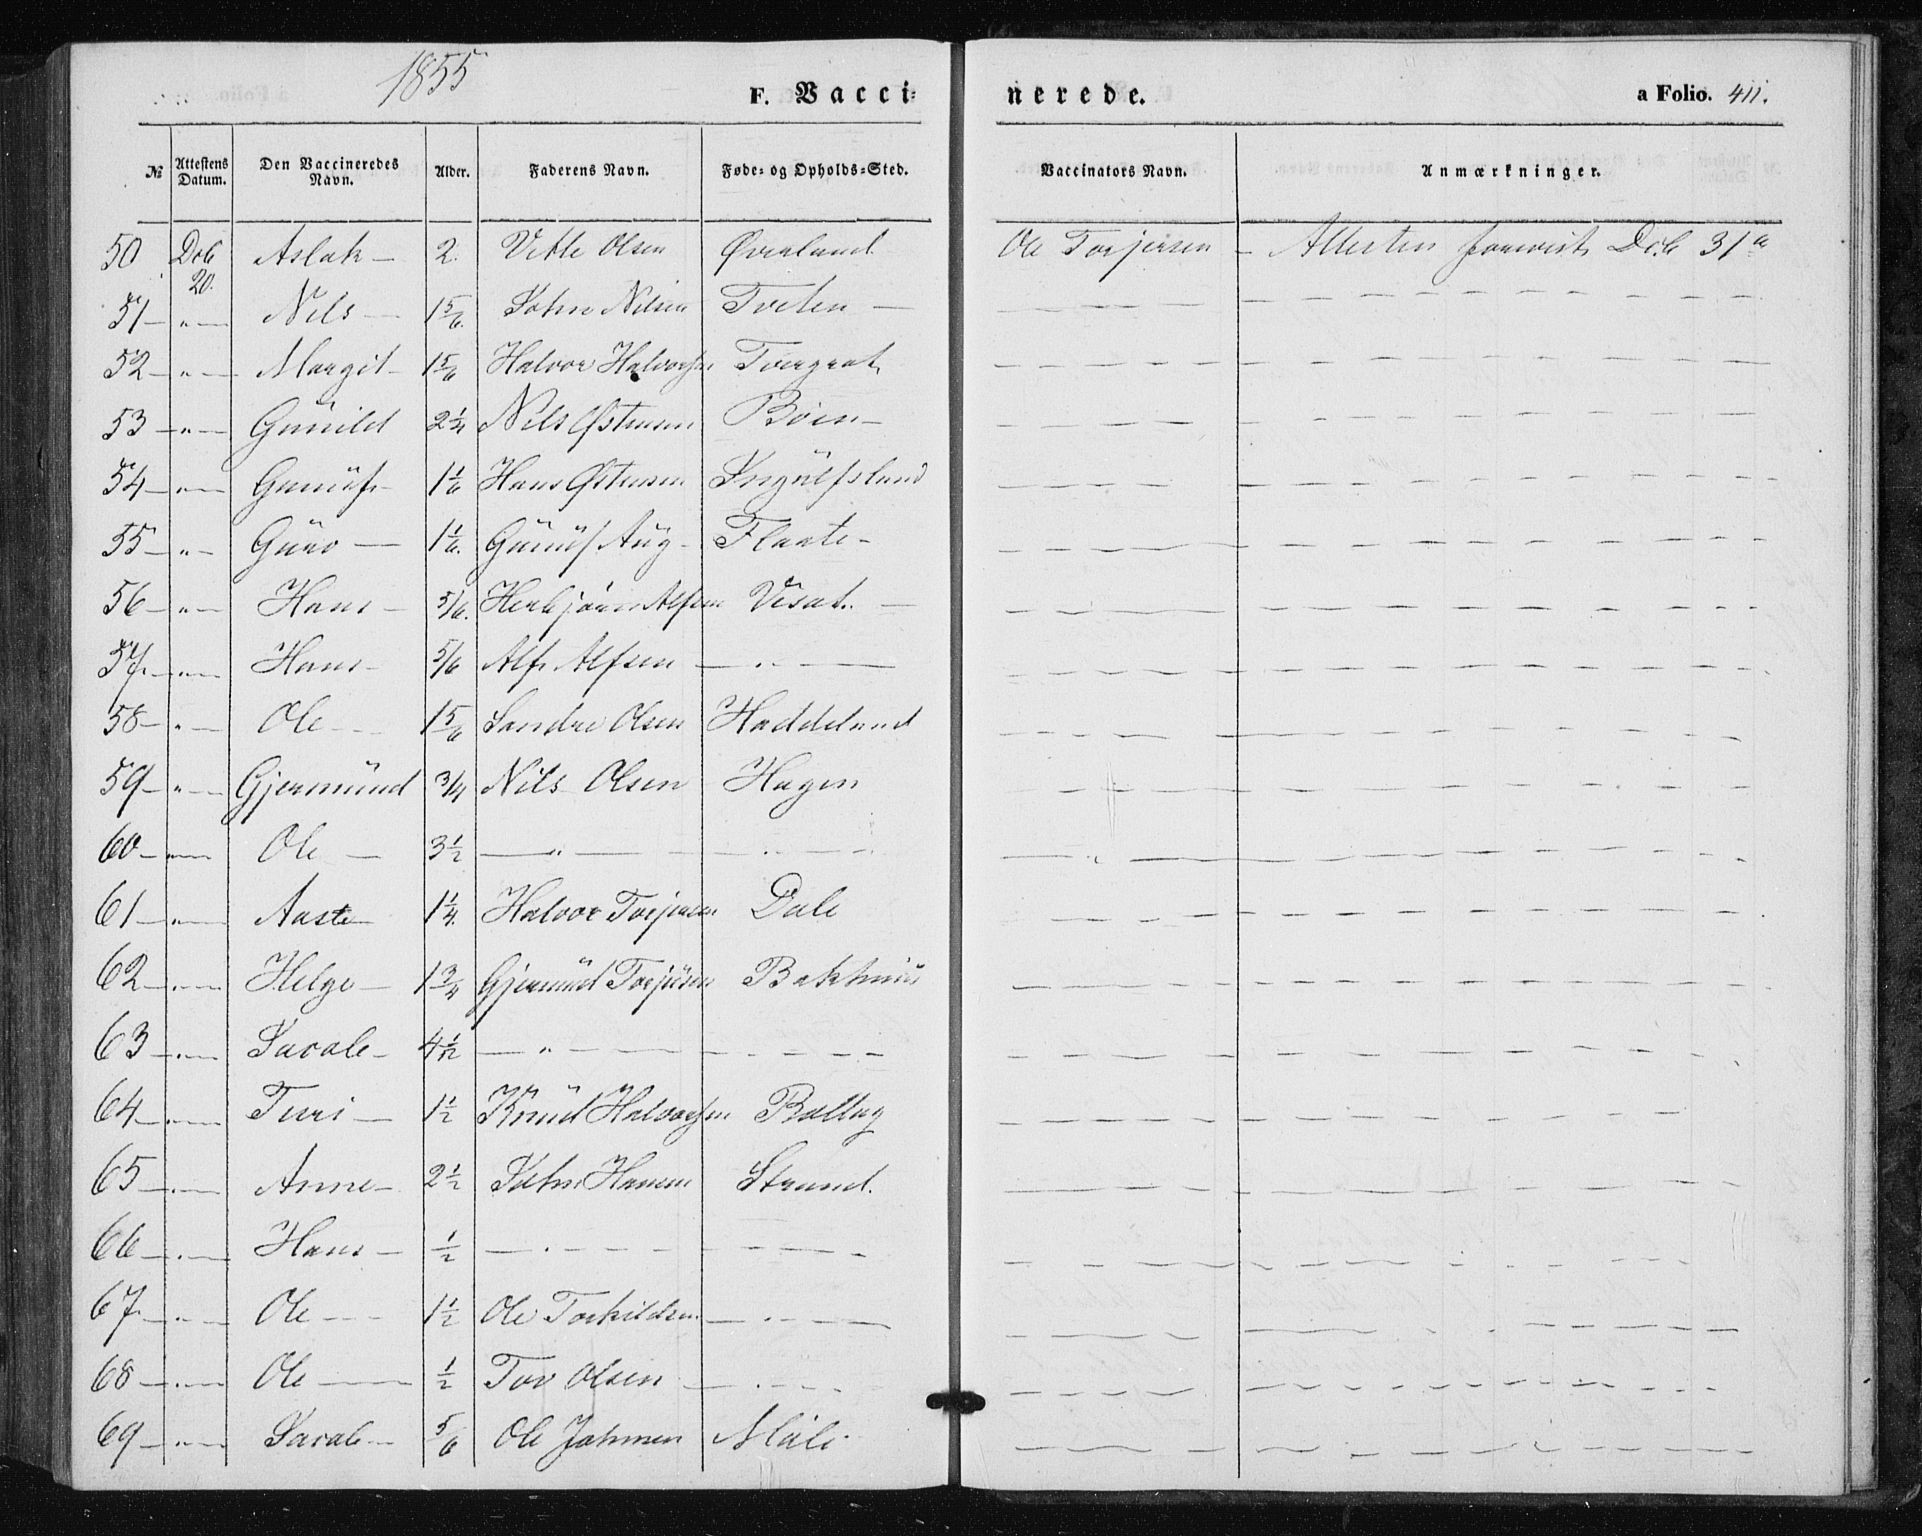 1855
F. Vacci-
nerede.
a Folio. 411.
№ Attestens Datum. Den Vaccineredes Navn. Alder. Faderens Navn. Føde- og Opholds-Sted. Vaccinators Navn. Anmærkninger.
50 Dcb 20. Aslak — 2. Vetle Olsen Øverland Ole Torjersen — Attesten foreviist Dcb 31te
51 — " — Nils — 1 5/6. John Nilsen Tveten — — — —
52 — " — Margit — 1 5/6 Halvor Halvorsen — — —
53 — " — Gunild 2 1/4 Nils Østensen Bøen — — — —
54 — " — Gunulf — 1 1/6 Hans Østensen Ingulfsland — — —
55 — " — Guro — 1 1/6. Gunulf Aug — Flaate — — — —
56 — " — Hans — 5/6. Herbjørn Alfsen Visat. — — — —
57 — " — Hans — 5/6 Alf Alfsen — " — — — —
58 — " — Ole — 1 5/6 Sondre Olsen Haddeland — — —
59 — " — Gjermund 3/4 Nils Olsen Hagen — — —
60 — " — Ole — 3 1/2 — " — — " — — " —
61 — " — Aaste 1 1/4. Halvor Torjersen Dale — — —
62 — " — Helge — 1 3/4 Gjermund Torjusen Bakhuus — — —
63 — " — Sarale — 4 1/12 — " — — — — — —
64 — " — Turi — 1 1/2 Knud Halvorsen Bøllag — — —
65 — " — Anne — 2 1/2 John Hansen Strand. — — —
66 — " — Hans — 1/2 — " — — — — — —
67 — " — Ole — 1 1/2 Ole Torkildsen — " — — — —
68 — " — Ole — 1/2 Tov Olsen — " — — — —
69 — " — Sarale — 5/6 Ole Johnsen Mæli — — —